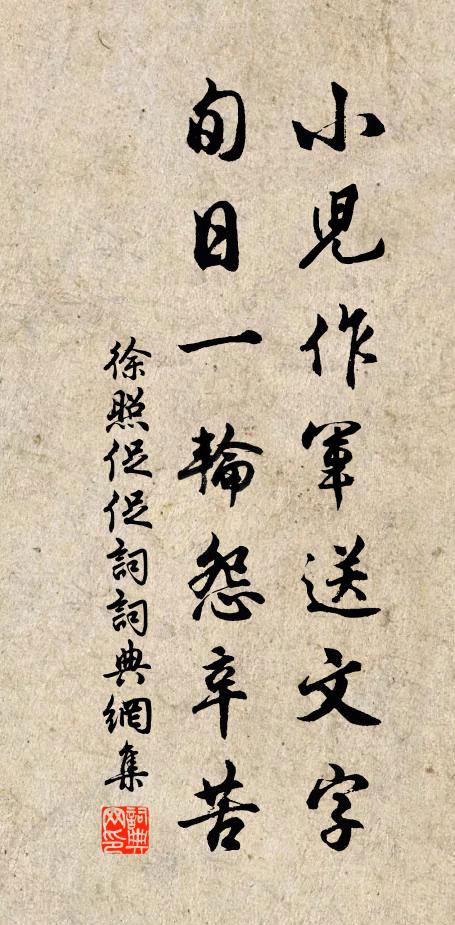 小兒作軍送文字
旬日一輪怨辛苦
徐照促促詞詞典網集
詞典网印